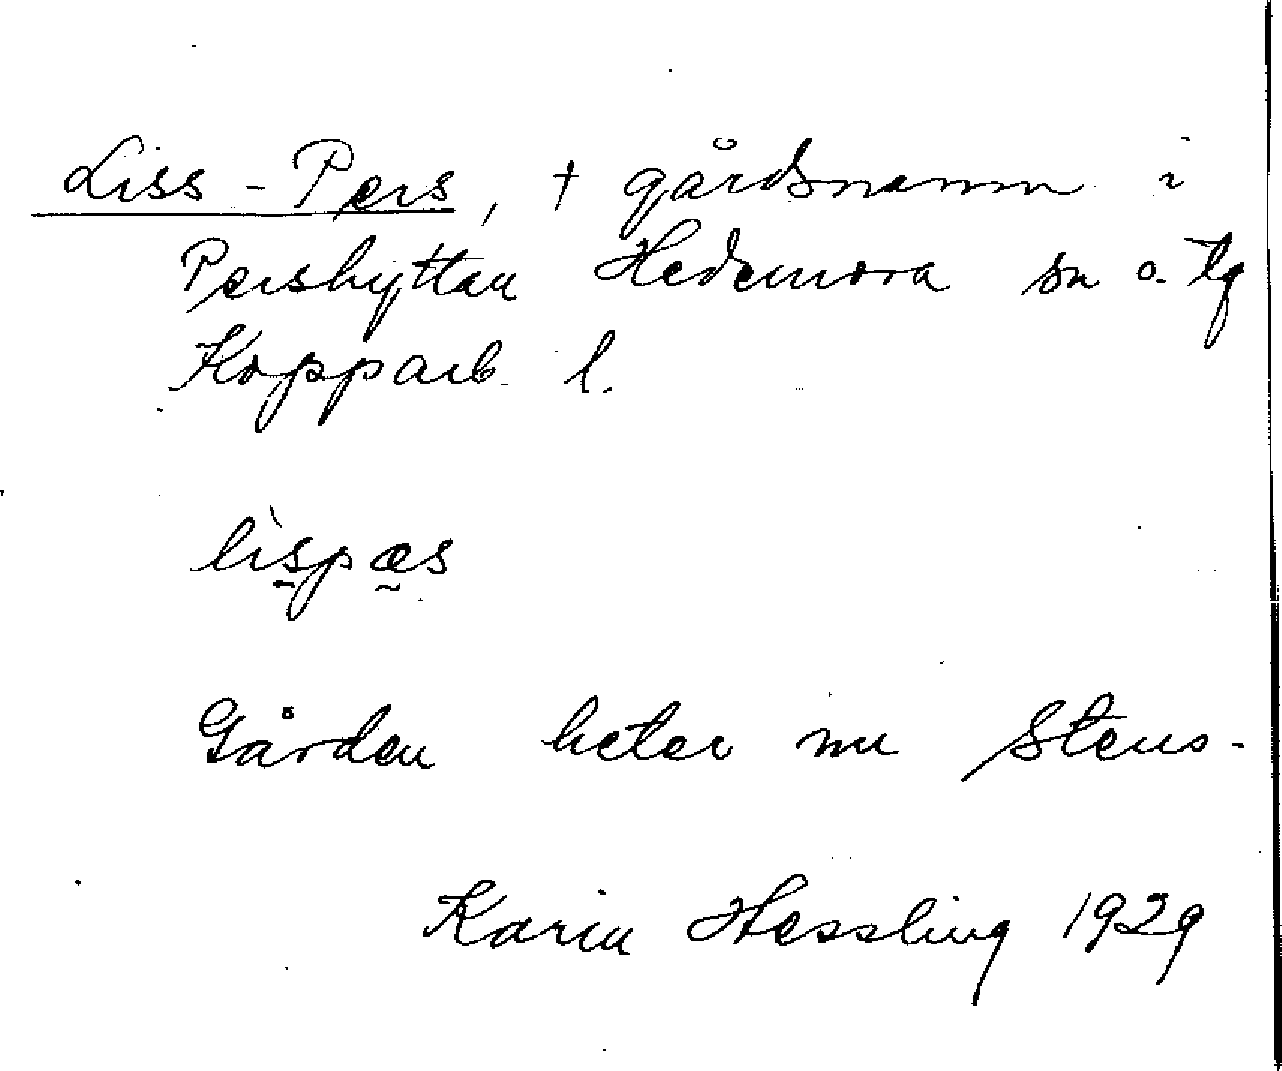 Liss-Pers, † gårdsnamn i
Pershyttan Hedemora sn o. tg
Kopparb. l.
lìspæs
Gården heter nu Stens-
Karin Hessling 1929